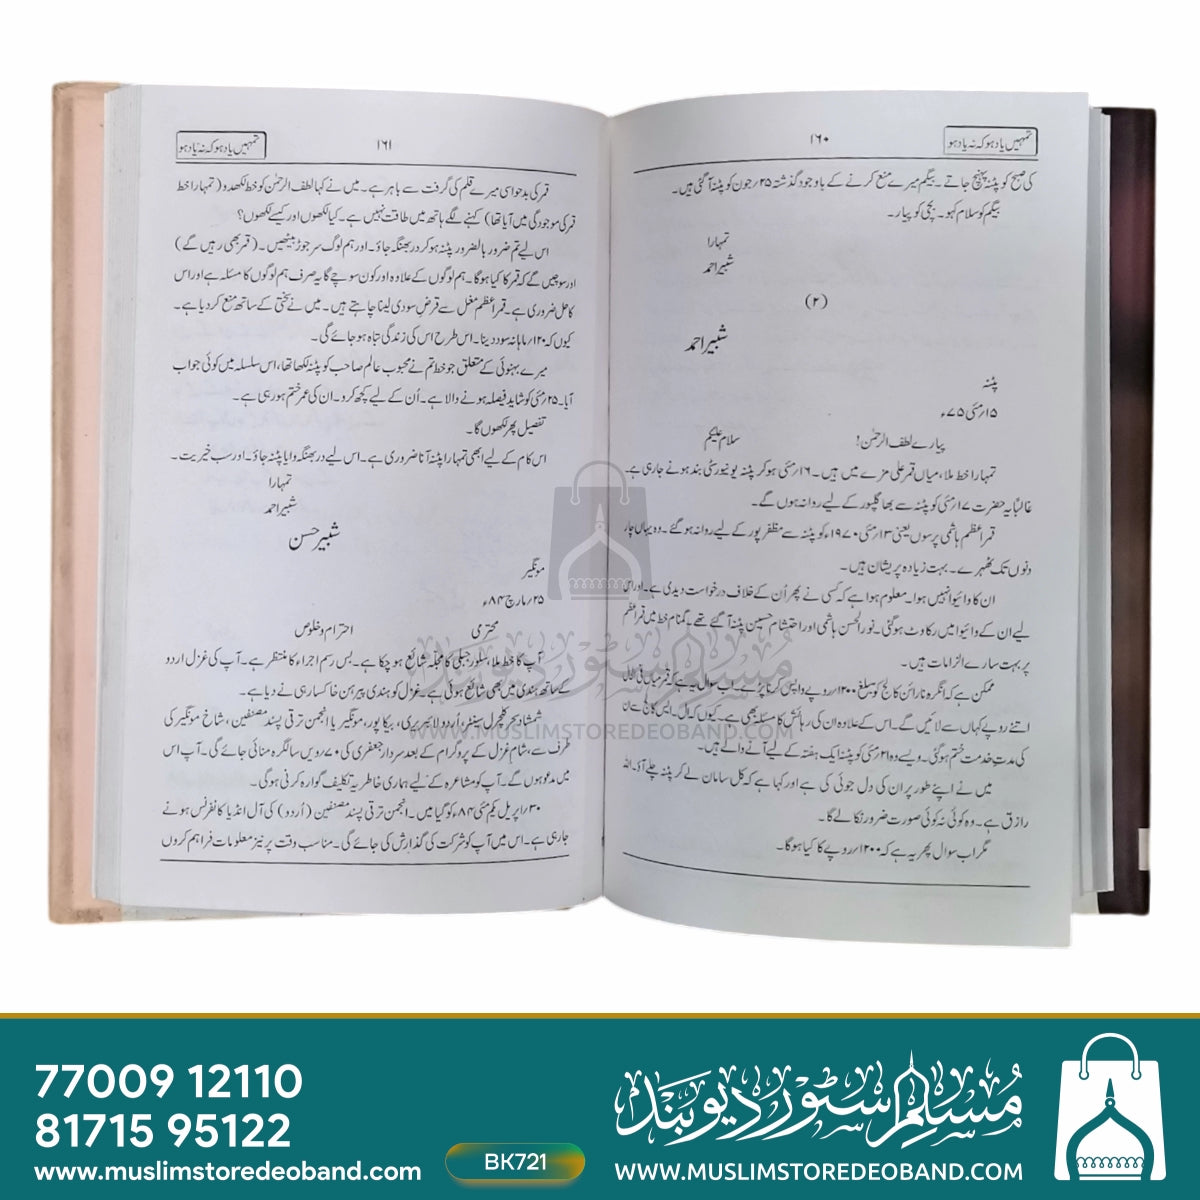 ۱۶۰
تمہیں یاد ہو کہ نہ یاد ہو
کی صبح کو پٹنہ پہنچ جاتے۔ بیگم میرے منع کرنے کے باوجود گذشتہ ۲۵؍جون کو پٹنہ آ گئی ہیں۔
بیگم کو سلام کہو۔ بچی کو پیار۔
تمہارا
شبیر احمد
(۲)
شبیر احمد
پٹنہ
۱۵؍مئی ۷۵ء
پیارے لطف الرحمٰن! سلام علیکم
تمہارا خط ملا، میاں قمر علی مزے میں ہیں۔ ۱۶؍مئی ہو کر پٹنہ یونیورسٹی بند ہونے جارہی ہے۔
غالباً یہ حضرت ۱۷؍مئی کو پٹنہ سے بھاگلپور کے لیے روانہ ہوں گے۔
قمر اعظم ہاشمی پرسوں یعنی ۱۳؍مئی ۱۹۷۰ء کو پٹنہ سے مظفر پور کے لیے روانہ ہو گئے۔ وہ یہاں چار
دنوں تک ٹھہرے۔ بہت زیادہ پریشان ہیں۔
ان کا وائیوا نہیں ہوا۔ معلوم ہوا ہے کہ کسی نے پھر اُن کے خلاف درخواست دیدی ہے۔ اور اسی
لیے ان کے وائیوا میں رکاوٹ ہو گئی۔ نور الحسن ہاشمی اور احتشام حسین پٹنہ آ گئے تھے۔ گمنام خط میں قمر اعظم
پر بہت سارے الزامات ہیں۔
ممکن ہے کہ انگرہ نارائن کالج کو مبلغ ۱۲۰۰؍روپے واپس کرنا پڑے۔ اب سوال یہ ہے کہ قمر میاں فی الحال
اتنے روپے کہاں سے لائیں گے۔ اس کے علاوہ ان کی رہائش کا مسئلہ بھی ہے۔ کیوں کہ ایس کالج سے ان
کی مدتِ خدمت ختم ہو گئی۔ ویسے وہ ۲۱؍مئی کو پٹنہ ایک ہفتہ کے لیے آنے والے ہیں۔
میں نے اپنے طور پر ان کی دل جوئی کی ہے اور کہا ہے کہ کل سامان لے کر پٹنہ چلے آؤ۔ اللہ
رازق ہے۔ وہ کوئی نہ کوئی صورت ضرور نکالے گا۔
مگر اب سوال پھر یہ ہے کہ ۱۲۰۰؍روپے کا کیا ہوگا۔
تمہیں یاد ہو کہ نہ یاد ہو
۱۶۱
قمر کی بدحواسی میرے قلم کی گرفت سے باہر ہے۔ میں نے کہا لطف الرحمٰن کو خط لکھدو (تمہارا خط
قمر کی موجودگی میں آیا تھا) کہنے لگے ہاتھ میں طاقت نہیں ہے۔ کیا لکھوں اور کیسے لکھوں؟
اس لیے تم ضرور بالضرور پٹنہ ہو کر دربھنگہ جاؤ۔ اور ہم لوگ سر جوڑ بیٹھیں۔ (قمر بھی رہیں گے)
اور سوچیں گے کہ قمر کا کیا ہوگا۔ ہم لوگوں کے علاوہ اور کون سوچے گا یہ صرف ہم لوگوں کا مسئلہ ہے اور اس
کا حل ضروری ہے۔ قمر اعظم مغل سے قرض سودی لینا چاہتے ہیں۔ میں نے سختی کے ساتھ منع کر دیا ہے۔
کیوں کہ ۱۲۰؍ماہانہ سود دینا۔ اس طرح اس کی زندگی تباہ ہو جائے گی۔
میرے بہنوئی کے متعلق جو خط تم نے محبوب عالم صاحب کو پٹنہ لکھا تھا، اس سلسلہ میں کوئی جواب
آیا۔ ۲۵ مئی کو شاید فیصلہ ہونے والا ہے۔ اُن کے لیے کچھ کرو۔ ان کی عمر ختم ہو رہی ہے۔
تفصیل پھر لکھوں گا۔
اس کام کے لیے ابھی تمہارا پٹنہ آنا ضروری ہے۔ اس لیے دربھنگہ وایا پٹنہ جاؤ۔ اور سب خیریت۔
تمہارا
شبیر احمد
شبیر حسن
مونگیر
۲۵؍مارچ ۸۴ء
محترمی احترام و خلوص
آپ کا خط ملا، سلور جبلی کا مجلہ شائع ہو چکا ہے۔ بس رسم اجراء کا منتظر ہے۔ آپ کی غزل اردو
کے ساتھ ہندی میں بھی شائع ہوئی ہے۔ غزل کو ہندی پیرہن خاکسار ہی نے دیا ہے۔
شمشاد سحر کلچرل سینٹر، اُردو لائبریری، بیکا پور، مونگیر یا انجمن ترقی پسند مصنفین، شاخ مونگیر کی
طرف سے، شام غزل کے پروگرام کے بعد سردار جعفری کی ۷۰ رویں سالگرہ منائی جائے گی۔ آپ اس
میں مدعو ہوں گے۔ آپ کو مشاعرہ کے لیے ہماری خاطر یہ تکلیف گوارہ کرنی ہوگی۔
۳۰؍اپریل یکم مئی ۸۴ء کو گیا میں۔ انجمن ترقی پسند مصنفین (اُردو) کی آل انڈیا کانفرنس ہونے
جا رہی ہے۔ اس میں آپ کو شرکت کی گذارش کی جائے گی۔ مناسب وقت پر نیز معلومات فراہم کروں
مسلم سٹور دیوبند
WWW.MUSLIMSTOREDEOBAND.COM
77009 12110
81715 95122
www.muslimstoredeoband.com
BK721
مسلم سٹور دیوبند
WWW.MUSLIMSTOREDEOBAND.COM